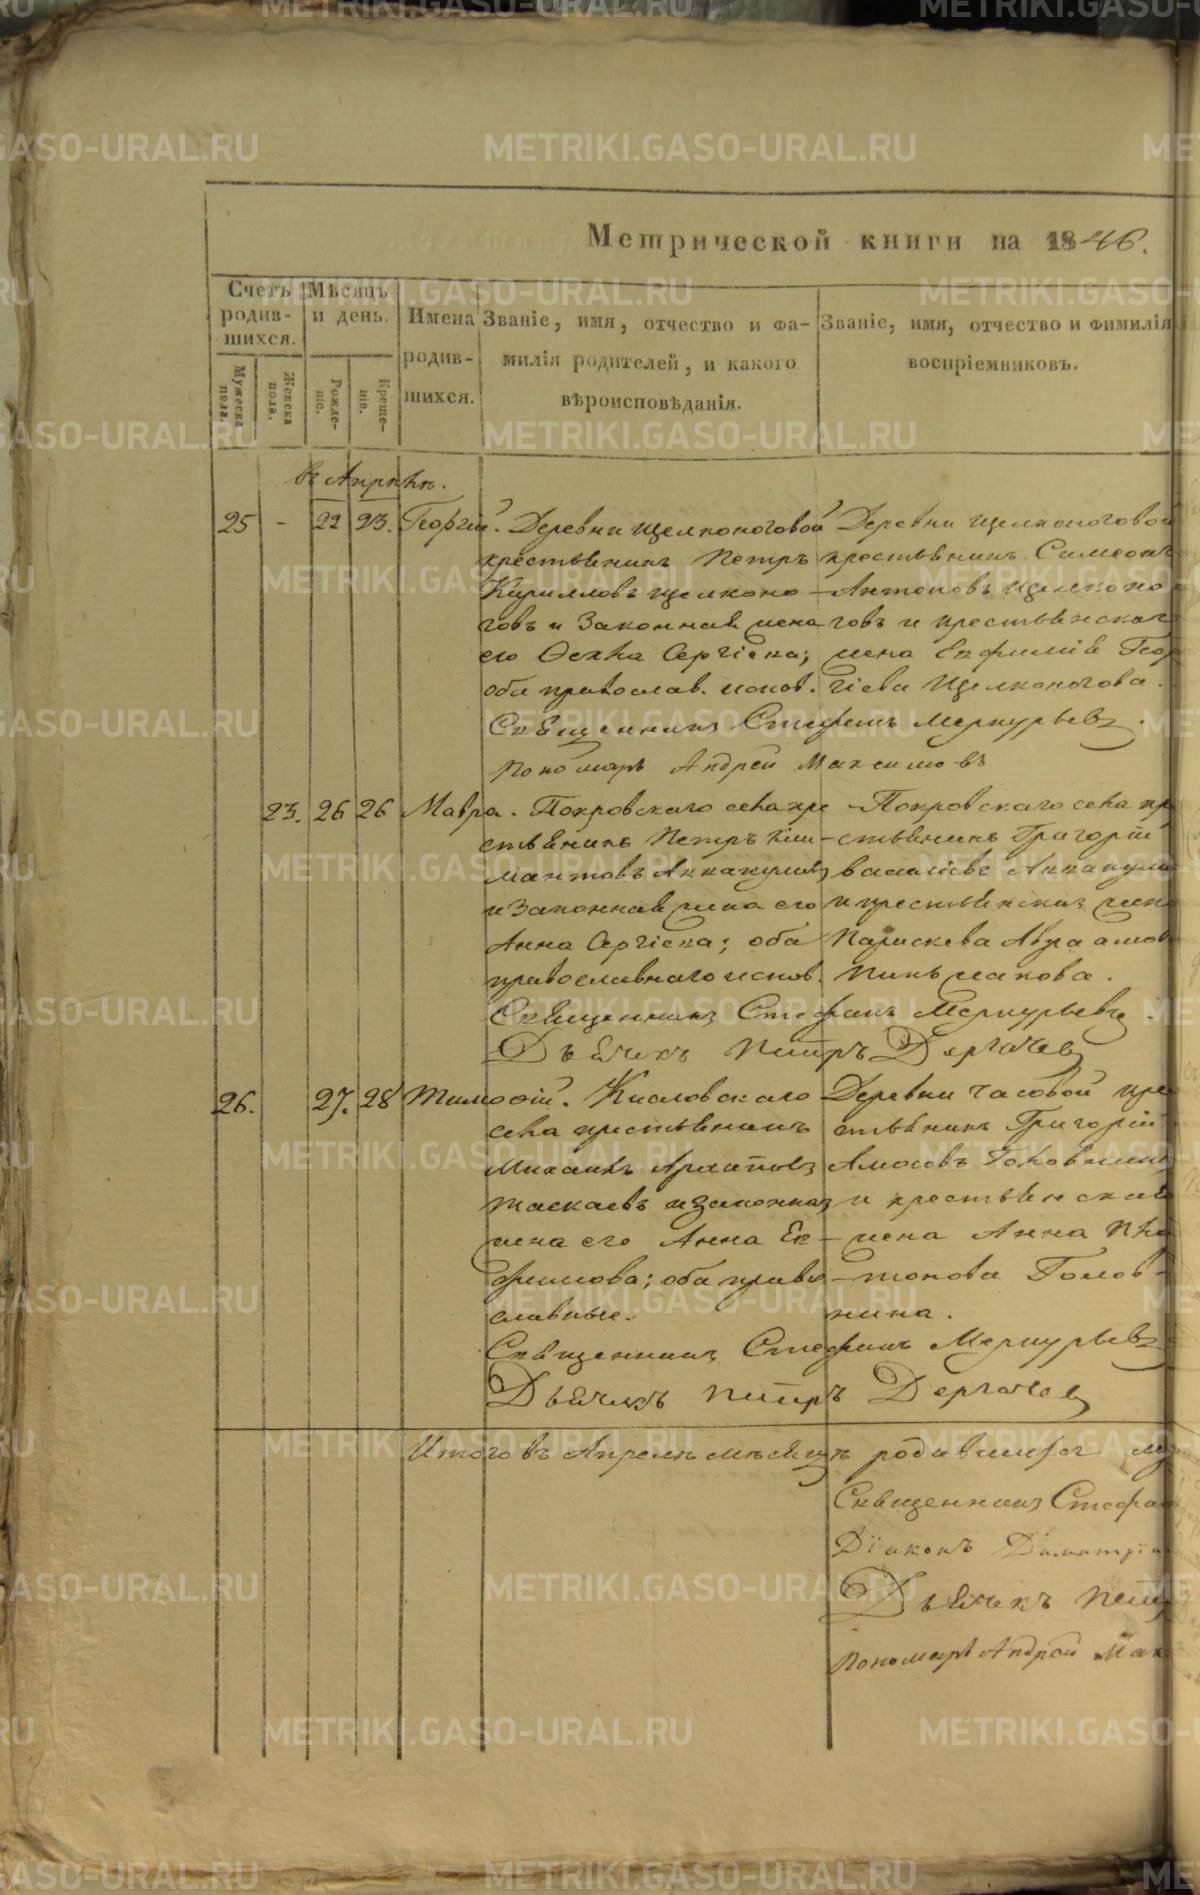 Метрической книги на 1846.
Счетъ родив- шихся.
Мѣсяцъ и день.
Имена родив- шихся.
Званіе, имя, отчество и фа- милія родителей, и какого вѣроисповѣданія.
Званіе, имя, отчество и фимилія воспріемниковъ.
Мужеска пола.
Женска пола.
Рожде- ніе.
Креще- ніе.
въ Апрѣлѣ.
25 - 22 23. Георгій.
Деревни Щелконоговой
крестьянинъ Петръ
Кирилловъ Щелконо
говъ и законная жена
его Ѳекла Сергіева;
оба православ. испов.
Деревни Щелконоговой
крестьянинъ Симеонъ
Антоновъ Щелконо
говъ и крестьянская
жена Евфимія Геор
гіева Щелконогова.
Священникъ Стефанъ Меркурьевъ.
Пономарь Андрей Максимовъ
23. 26 26 Мавра.
Покровскаго села кре
стьянинъ Петръ Кли-
мантовъ Аввакумовъ
и законная жена его
Анна Сергіева; оба
православнаго испов.
Покровскаго села кр
стьянинъ Григорій
Василіевъ Аввакум
и крестьянская жен
Параскева Авраамов
Священникъ Стефанъ Меркурьевъ.
Дьячекъ Петръ Дергачевъ
26. 27. 28 Тимоѳій.
Кисловскаго
села крестьянинъ
Михаилъ Архиповъ
Таскаевъ и законная
жена его Анна Ев-
фимова; оба право
славные.
Деревни Часовой кре
стьянинъ Григорій
Амосовъ Головнинъ
и крестьянская
жена Анна Пла
тонова Голов-
нина.
Священникъ Стефанъ Меркурьевъ
Дьячекъ Петръ Дергачевъ
Итого въ Апрелѣ мѣсяцѣ родившихся му
Священникъ Стефан
Діаконъ Димитрій
Дьячекъ Петр
Пономарь Андрей Мак
METRIKI.GASO-URAL.RU